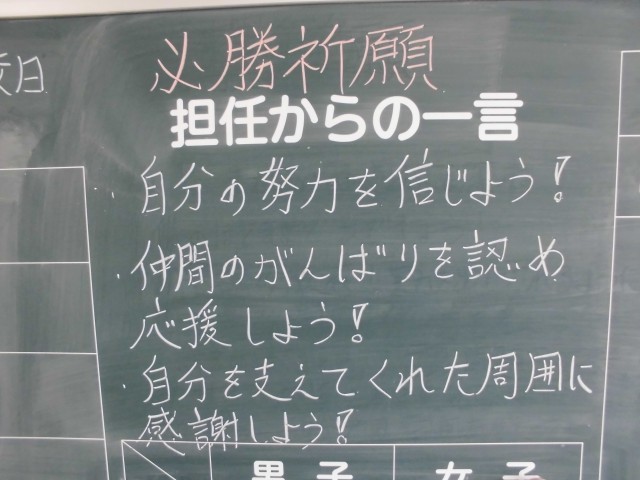 必勝祈願
担任からの一言
・自分の努力を信じよう!
・仲間のがんばりを認め
応援しよう!
・自分を支えてくれた周囲に
感謝しよう!
男子 女子